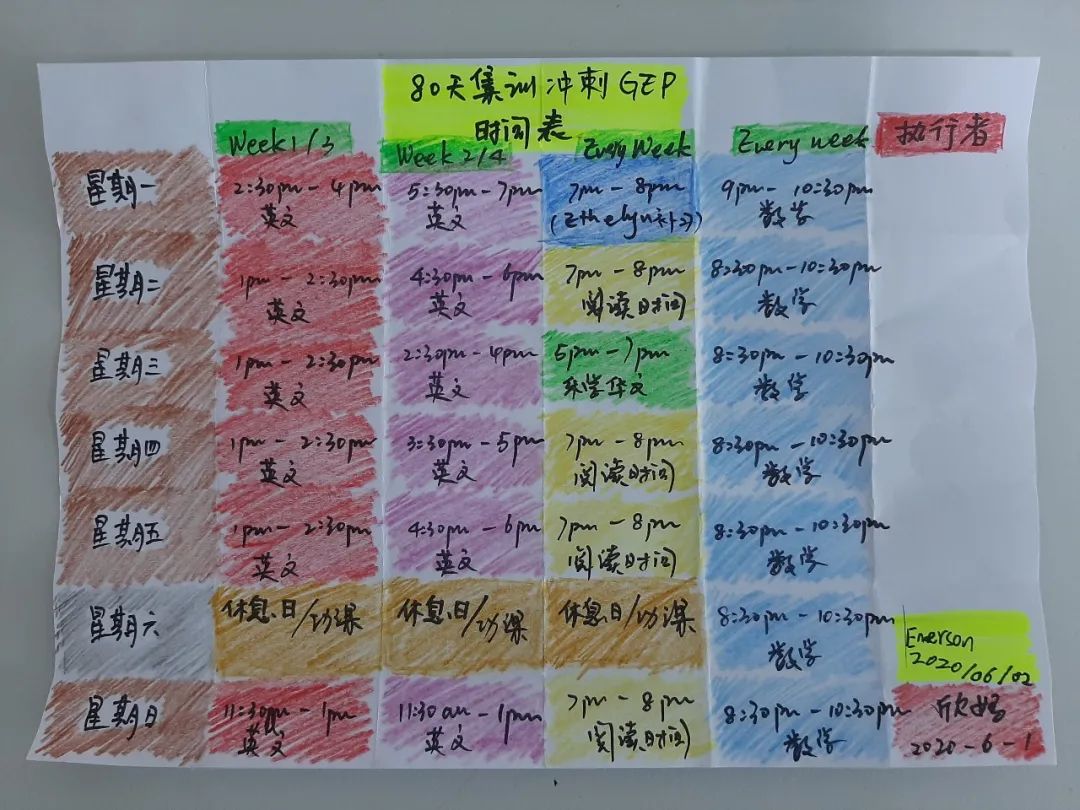 80天集训冲刺GEP
时间表
Week 1/3 Week 2/4 Every Week Every week 执行者
星期一 2:30pm - 4pm 5:30pm - 7pm 7pm - 8pm 9pm - 10:30pm
英文 英文 (Ethelyn补习) 数学
星期二 1pm - 2:30pm 4:30pm - 6pm 7pm - 8pm 8:30pm - 10:30pm
英文 英文 阅读时间 数学
星期三 1pm - 2:30pm 2:30pm - 4pm 5pm - 7pm 8:30pm - 10:30pm
英文 英文 乐学华文 数学
星期四 1pm - 2:30pm 3:30pm - 5pm 7pm - 8pm 8:30pm - 10:30pm
英文 英文 阅读时间 数学
星期五 1pm - 2:30pm 4:30pm - 6pm 7pm - 8pm 8:30pm - 10:30pm
英文 英文 阅读时间 数学
星期六 休息日/功课 休息日/功课 休息日/功课 8:30pm - 10:30pm
数学
Emerson
2020/06/02
星期日 11:30pm - 1pm 11:30am - 1pm 7pm - 8pm 8:30pm - 10:30pm
英文 英文 阅读时间 数学
2020-6-1